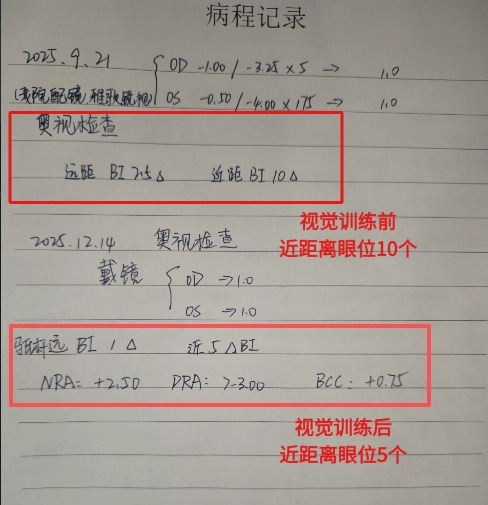 病程记录
2025.9.21 { OD -1.00 / -3.25 × 5 → 1.0
(我院配镜, 雅歌镜视) OS -0.50 / -4.00 × 175 → 1.0
奥视检查
远距 BI 7.5△ 近距 BI 10△
视觉训练前
近距离眼位10个
2025.12.14 奥视检查
戴镜 { OD → 1.0
OS → 1.0
远 BI 1△ 近 5△BI
NRA: +2.50 PRA: >-3.00 BCC: +0.75
视觉训练后
近距离眼位5个